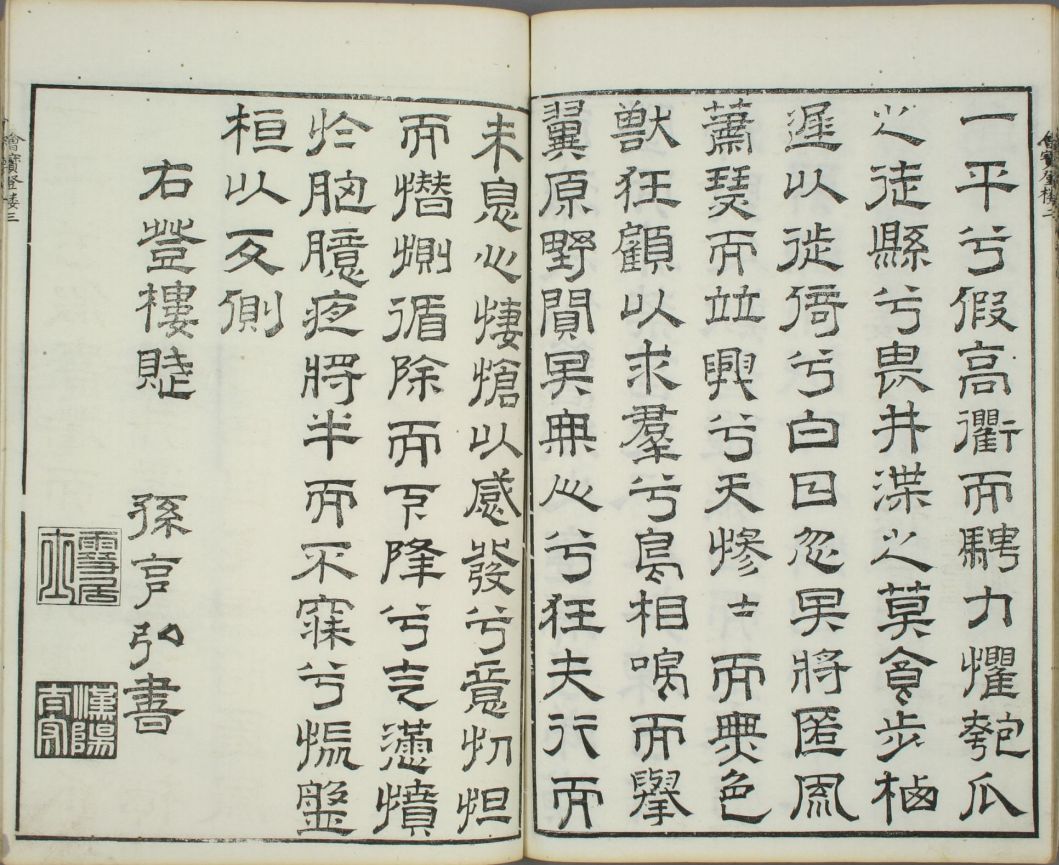 一平兮假高衢而騁力懼匏瓜
之徒縣兮畏井渫之莫食步栖
遲以徙倚兮白日忽其將匿風
蕭瑟而竝興兮天慘〻而無色
獸狂顧以求羣兮鳥相鳴而擧
翼原野闃其無人兮征夫行而
未息心悽愴以感發兮意忉怛
而憯惻循除而下降兮氣懣憤
於胷臆夜將半而不寐兮悵盤
桓以反側
右登樓賦　孫克弘書
雪居
漢陽太守